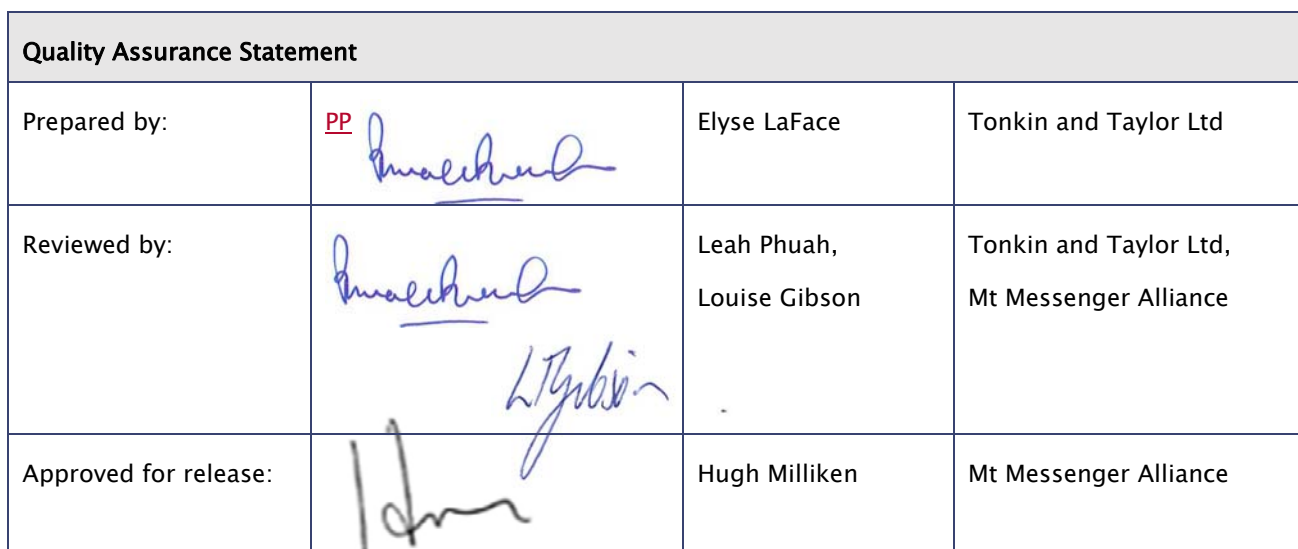 Quality Assurance Statement
Prepared by: PP Elyse LaFace Tonkin and Taylor Ltd
Reviewed by: Leah Phuah, Tonkin and Taylor Ltd,
Louise Gibson Mt Messenger Alliance
LTGibson
Approved for release: Hugh Milliken Mt Messenger Alliance